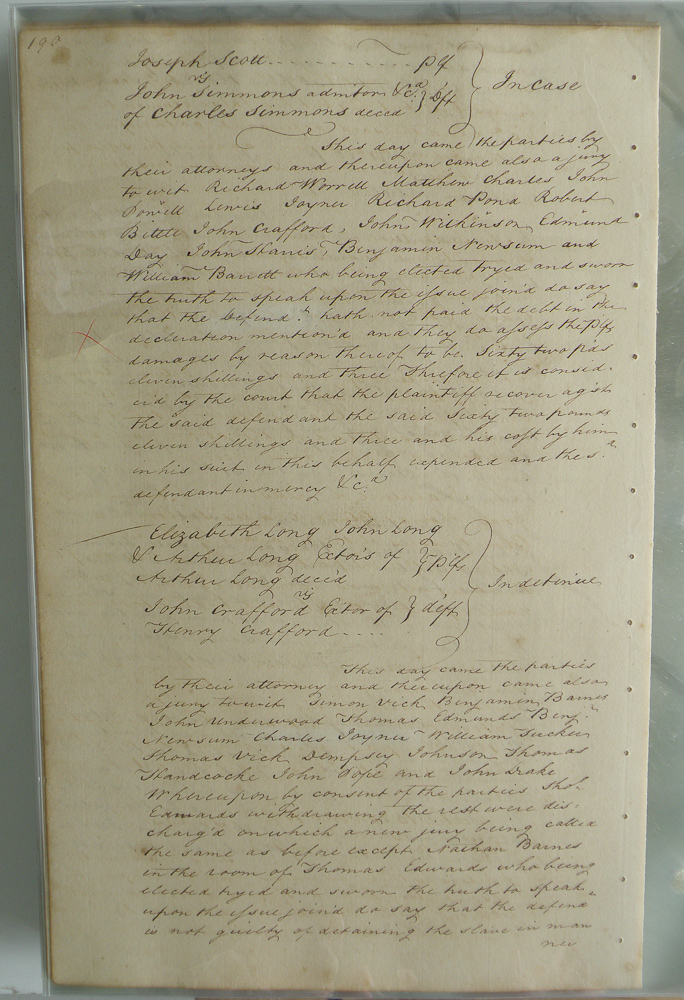 190
Joseph Scott . . . . . . . . . . . . . plf
vs
John Simmons admitor &c.a } Dft } In Case
of Charles Simmons decd
This day came the parties by
their attorneys and thereupon came also a jury
to wit Richard Worrell Matthew Charles John
Powell Lewis Joyner Richard Pond Robert
Bittle John Crafford, John Wilkinson Edmund
Day John Harris, Benjamin Newsum and
William Barrett who being elected tryed and sworn
the truth to speak upon the issue joind do say
that the Defend.t hath not paid the debt in the
declaration mention'd and they do assess the plfs
damages by reason thereof to be Sixty two pds
eleven shillings and three Therefore it is consid-
er'd by the court that the plaintiff recover agst
the said defendant the said Sixty two pounds
eleven shillings and three and his cost by him
in his suit in this behalf expended and the s.d
defendant in mercy &c.a
Elizabeth Long John Long
& Arthur Long Exto'rs of } plfs
Arthur Long dec'd
vs } In detinue
John Crafford Extor of } deft
Henry Crafford . . . .
This day came the parties
by their attorney and thereupon came also
a jury to wit Simon Vick Benjamin Barnes
John Underwood Thomas Edmunds Benj.n
Newsum Charles Joyner William Tucker
Thomas Vick Dempsey Johnson Thomas
Handcocke John Pope and John Drake
Whereupon by consent of the parties Tho.s
Edwards withdrawing the rest were dis-
charg'd on which a new jury being called
the same as before except Nathan Barnes
in the room of Thomas Edwards who being
elected tryed and sworn the truth to speak
upon the issue join'd do say that the defend
is not guilty of detaining the slave in man
ner